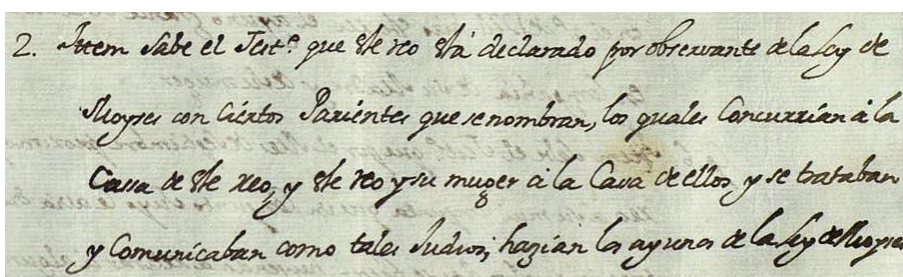 2. Ittem Sabe el Test.º que este reo está declarado por observante de la Ley de
Moyses con Ciertos Parientes que se nombran, los quales Concurrian â la
Cassa de este reo, y este reo y su muger â la Cassa de ellos, y se trataban
y Comunicaban como tales Judios; hazian los ayunos de la Ley de Moyses